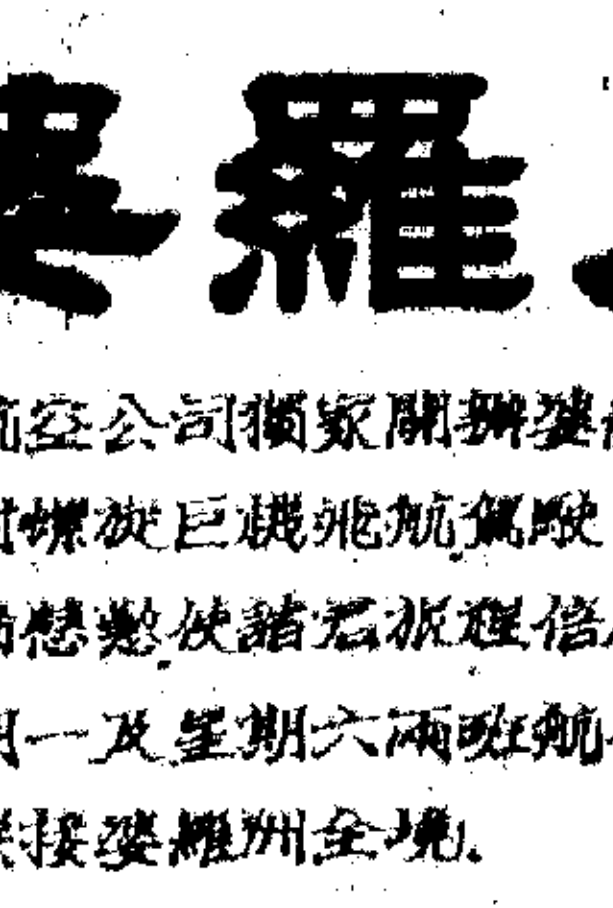 羅
航空公司獨家開辦婆
螺旋巨機飛航駕駛
慇懃使諸君旅程倍
一及星期六兩班航
接婆羅洲全境.